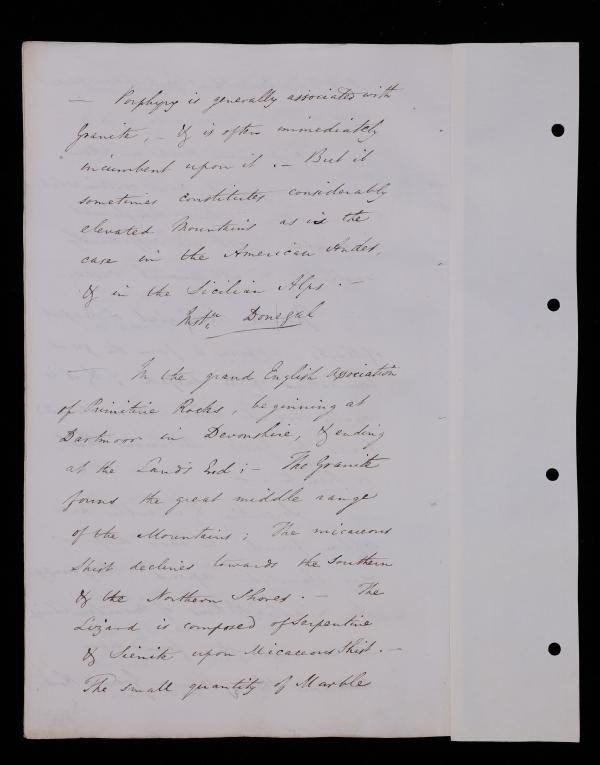 — Porphyry is generally associated with
Granite, – & is often immediately
incumbent upon it. – But it
sometimes constitutes considerably
elevated Mountains as is the
case in the American Andes,
& in the Sicilian Alps. –
Donegal
— In the grand English Association
of Primitive Rocks, beginning at
Dartmoor in Devonshire, & ending
at the Land's End; – The Granite
forms the great middle range
of the Mountains; The micaceous
Shist declines towards the Southern
& the Northern Shores. – The
Lizard is composed of Serpentine
& Sienite upon Micaceous Shist. –
The small quantity of Marble